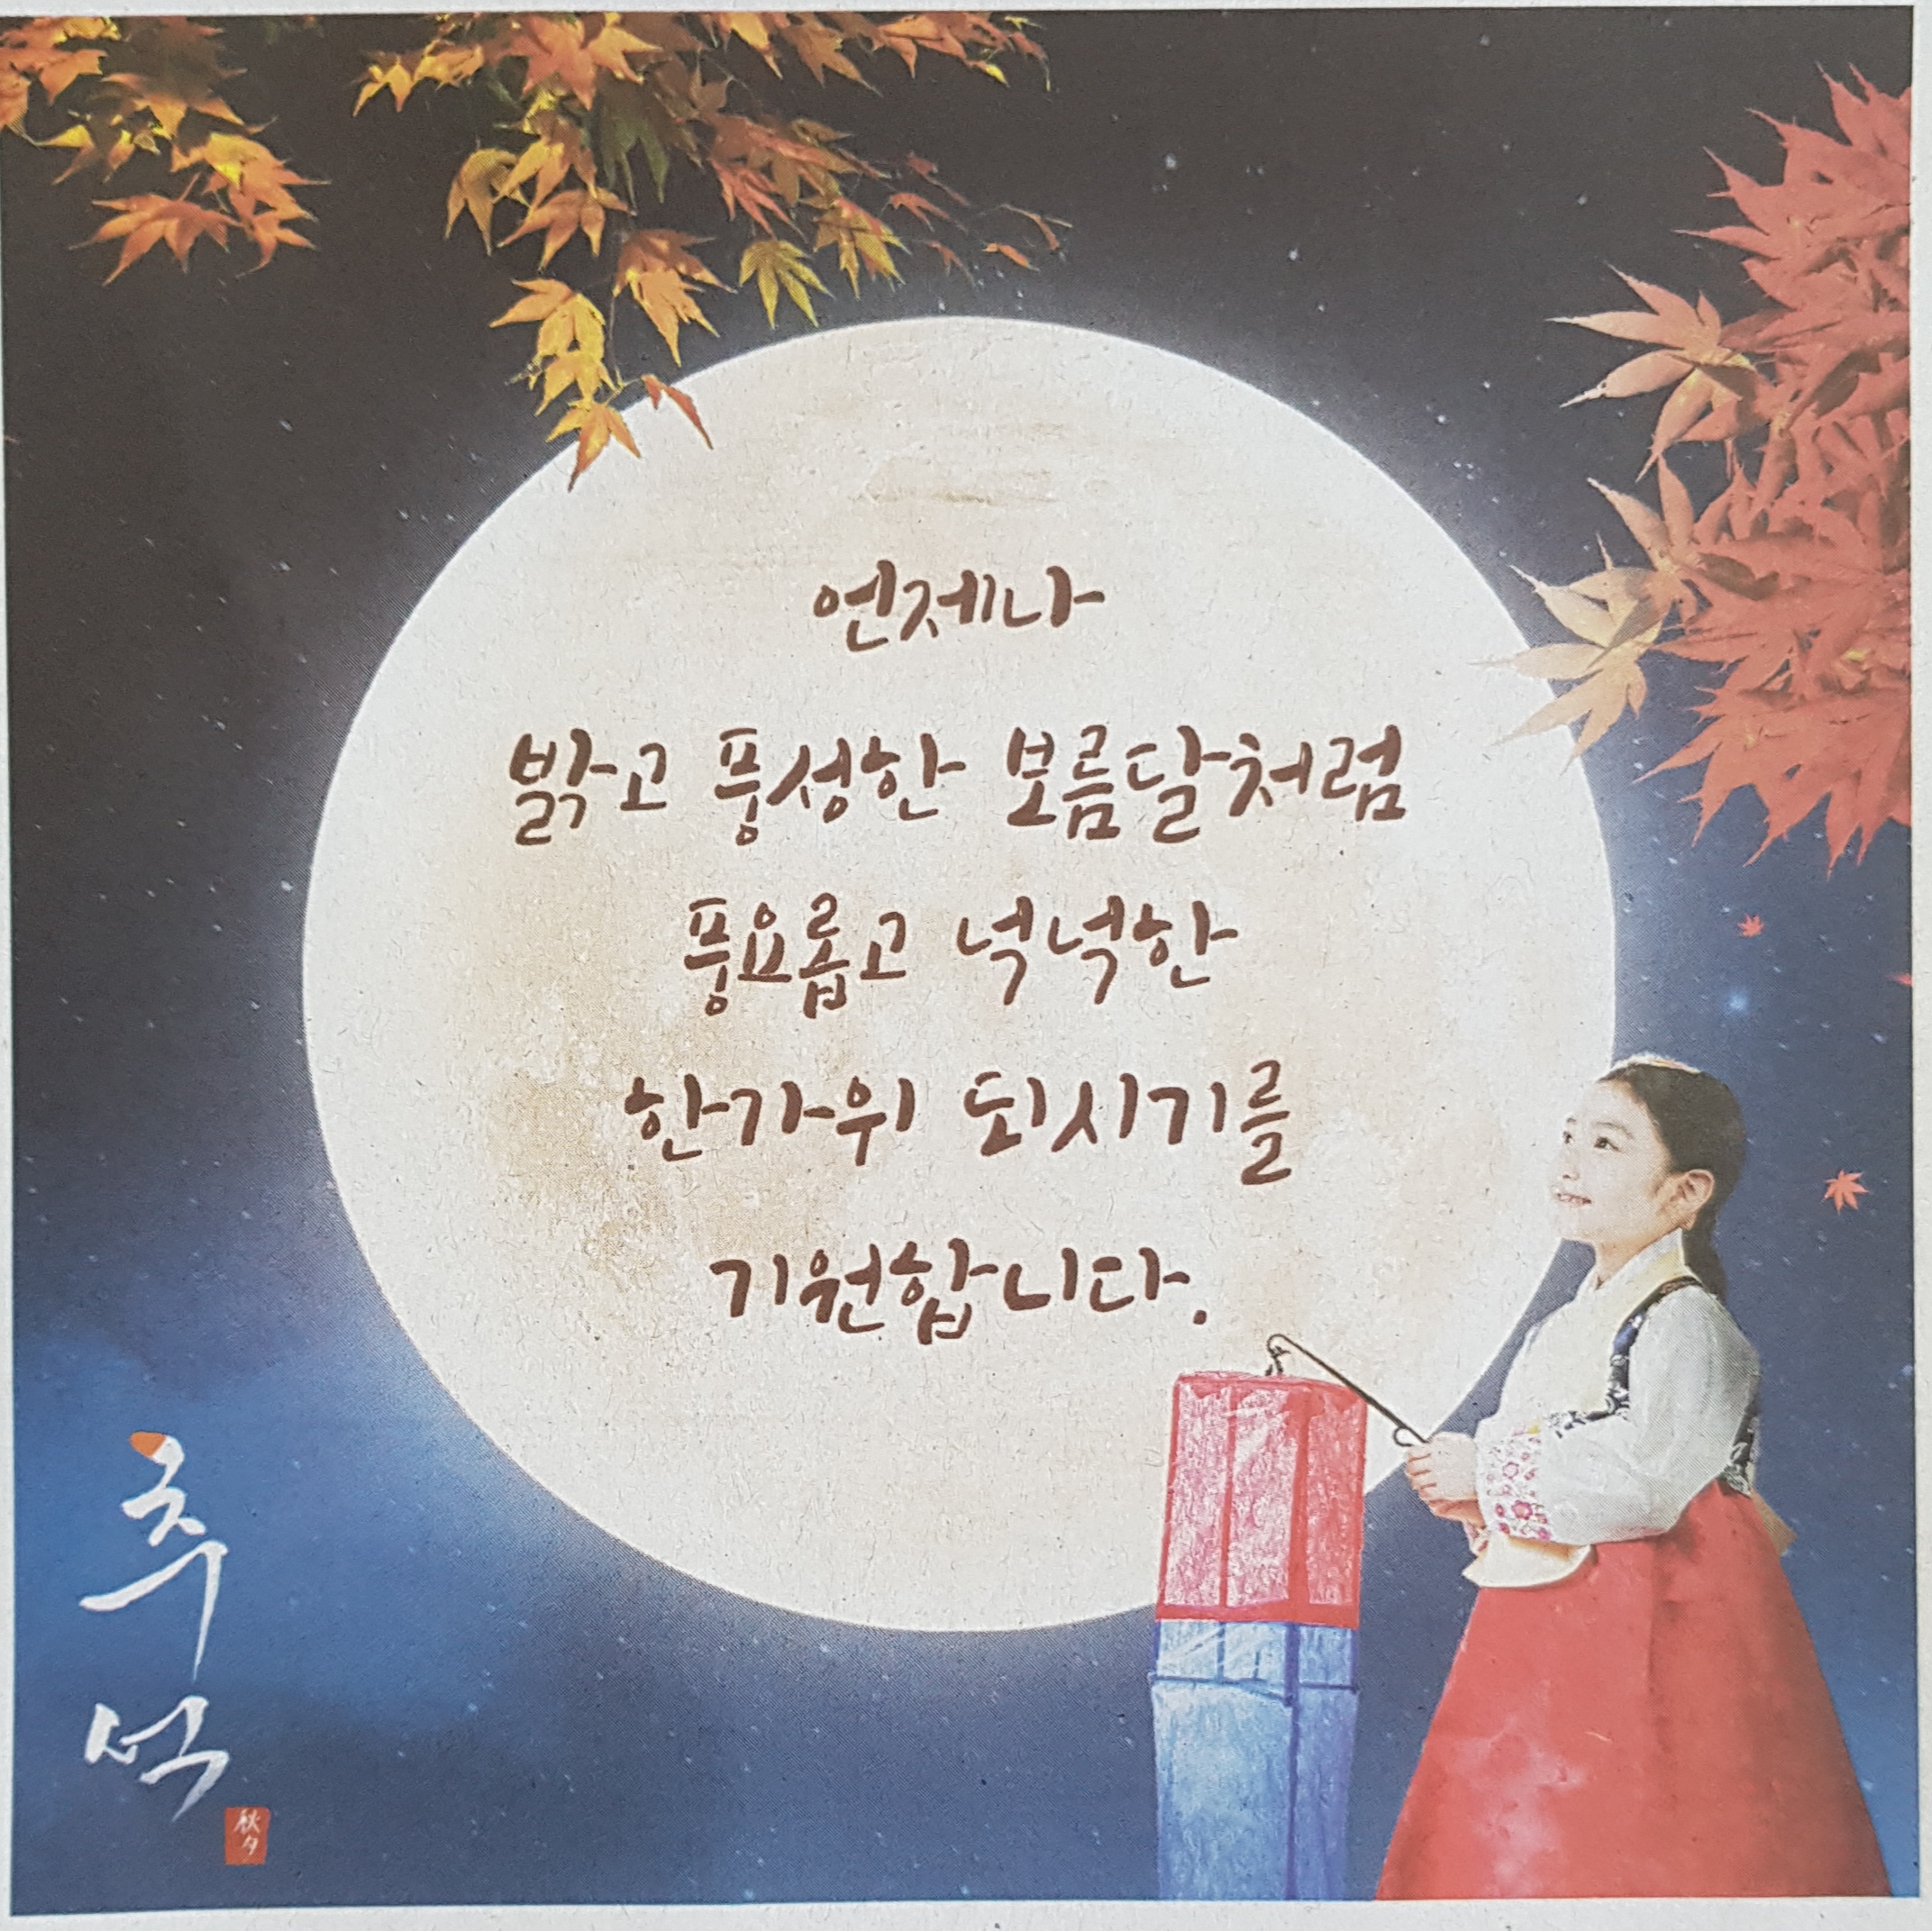 언제나
밝고 풍성한 보름달처럼
풍요롭고 넉넉한
한가위 되시기를
기원합니다.
추석
秋夕